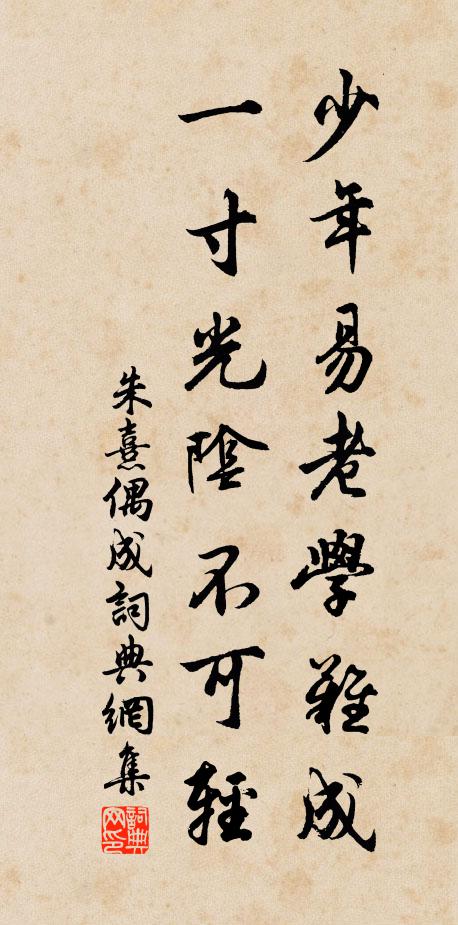 少年易老學難成
一寸光陰不可輕
朱熹偶成詞典網集
詞典網印